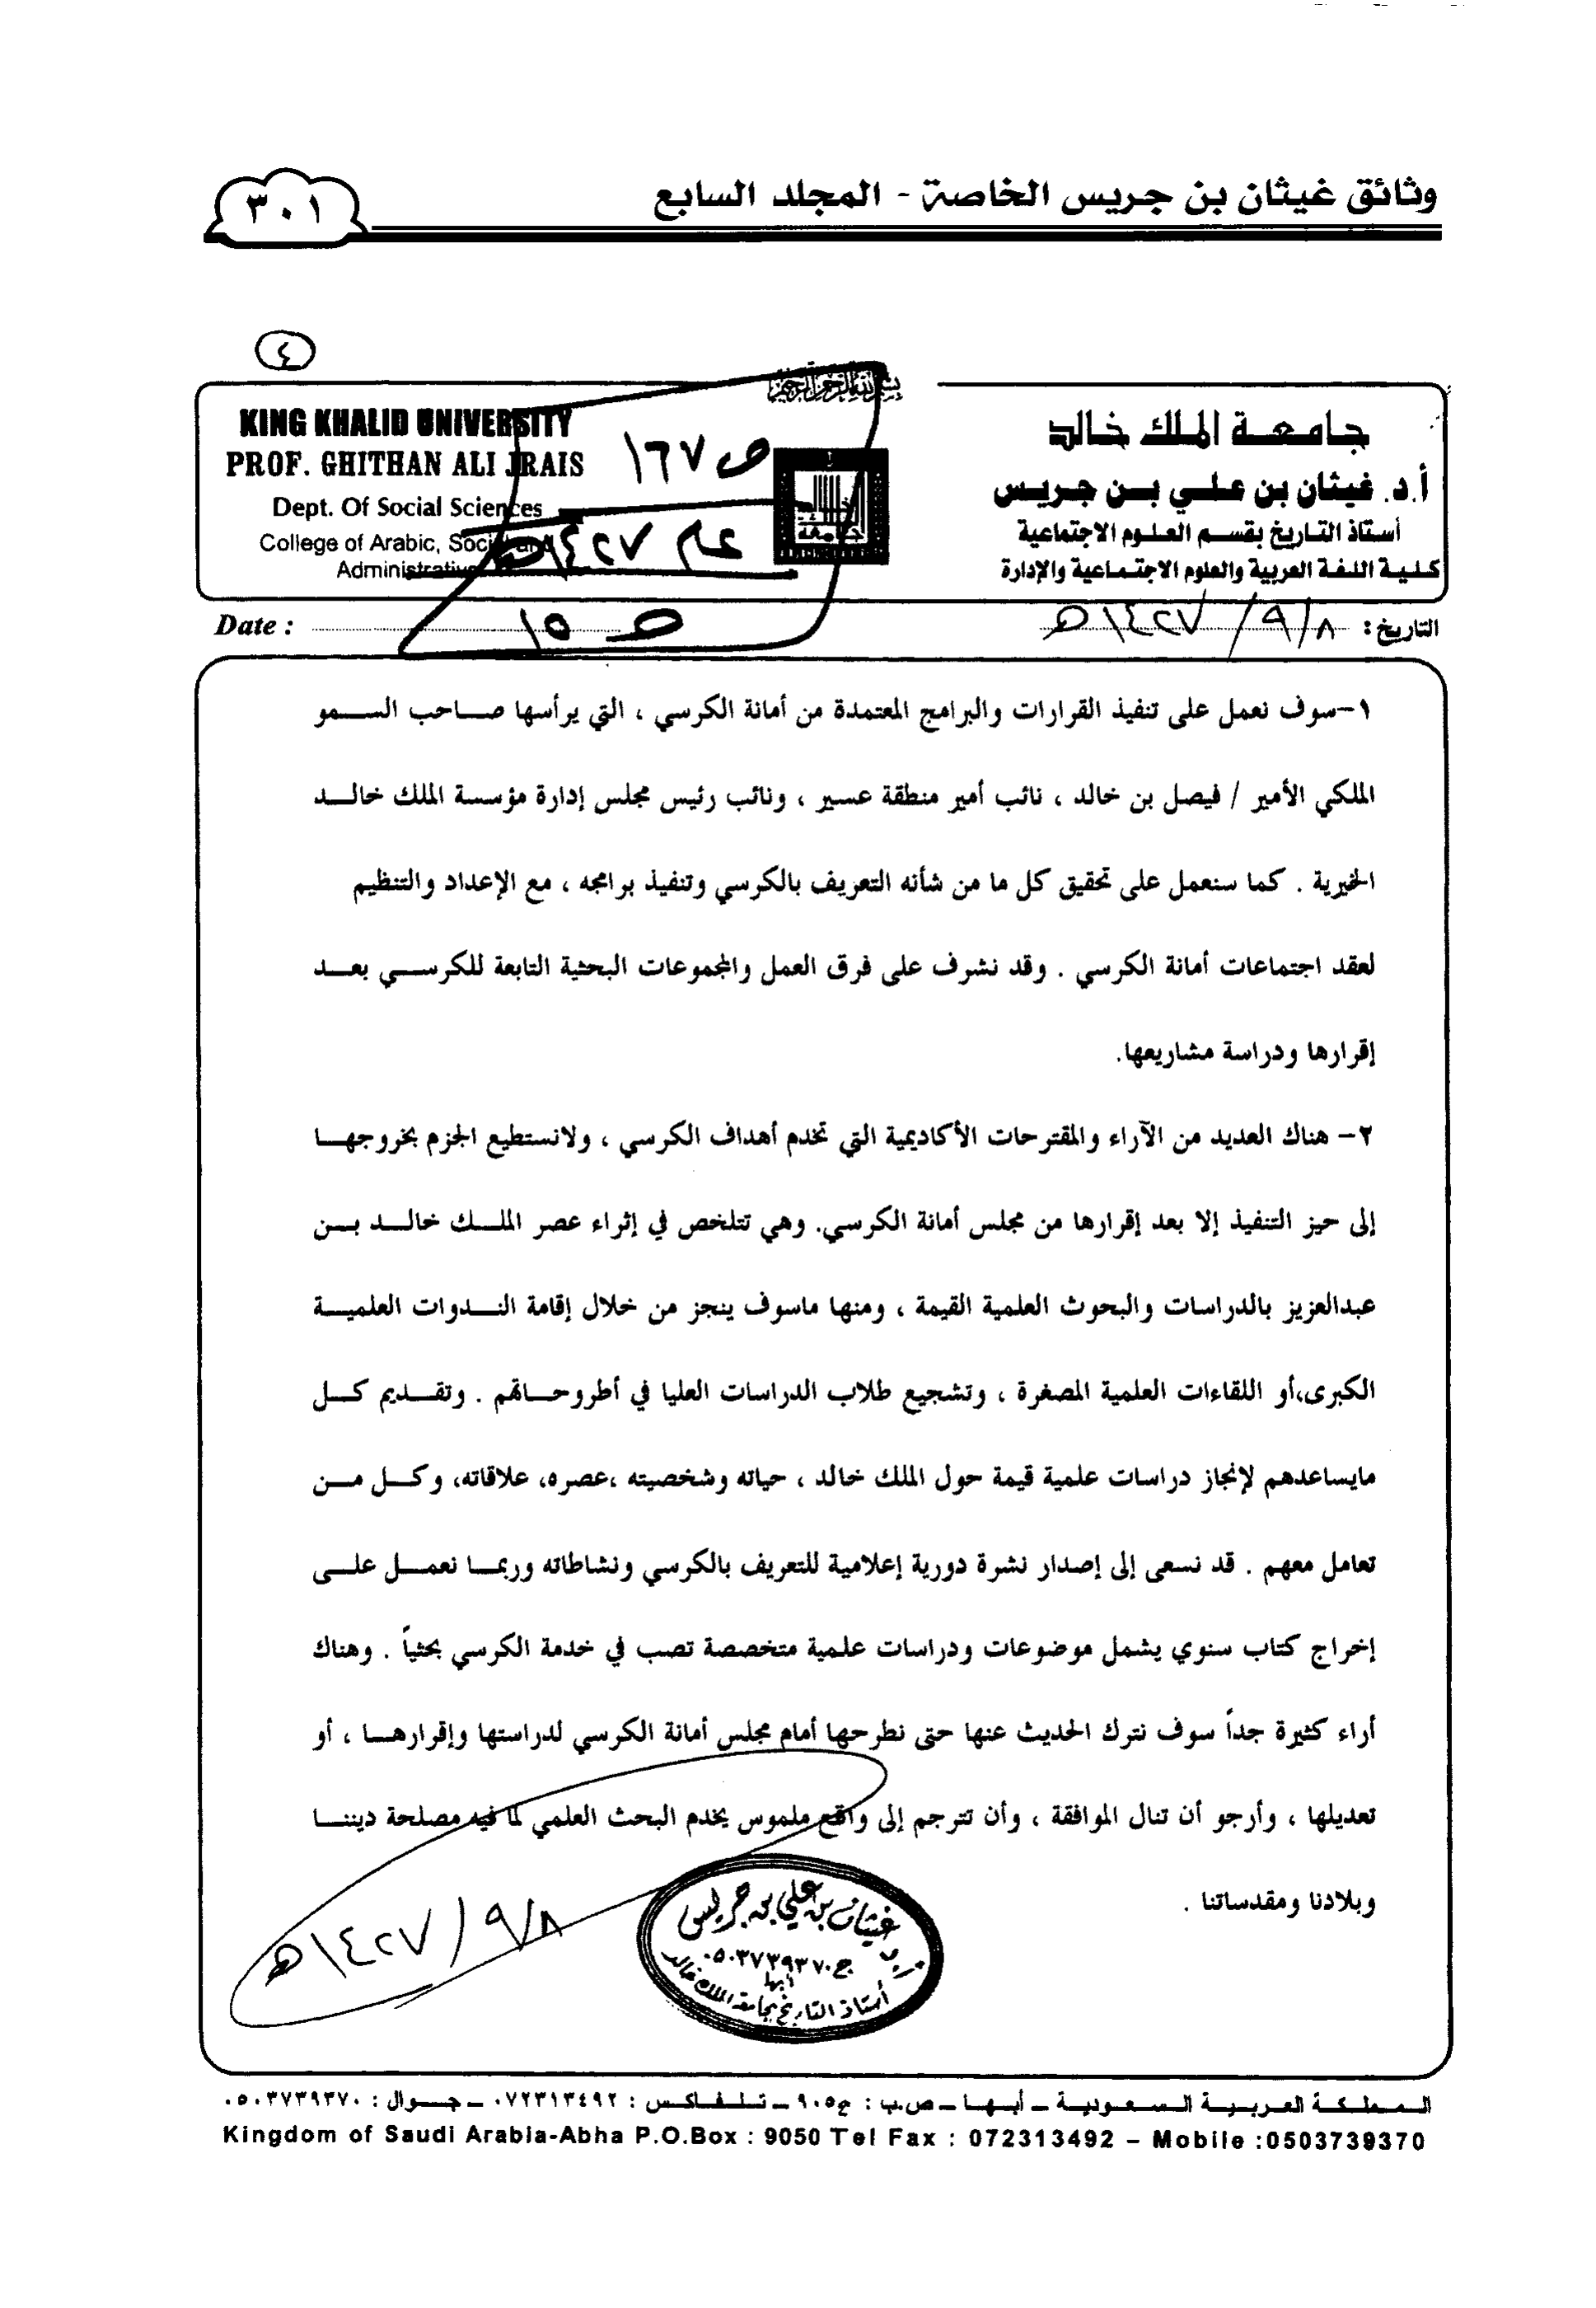 وثائق غيثان بن جريس الخاصة - المجلد السابع
٣٠١
٤
بسم الله الرحمن الرحيم
جامعة الملك خالد
أ.د. غيثان بن علي بن جريس
أستاذ التاريخ بقسم العلوم الاجتماعية
كلية اللغة العربية والعلوم الاجتماعية والإدارة
KING KHALID UNIVERSITY
PROF. GHITHAN ALI JRAIS
Dept. Of Social Sciences
College of Arabic, Social and
Administrative
ص ١٦٧
عام ١٤٢٧هـ
ص ١٥
التاريخ: ٩/٨/ ١٤٢٧هـ
Date :
١-سوف نعمل على تنفيذ القرارات والبرامج المعتمدة من أمانة الكرسي ، التي يرأسها صاحب السمو
الملكي الأمير / فيصل بن خالد ، نائب أمير منطقة عسير ، ونائب رئيس مجلس إدارة مؤسسة الملك خالد
الخيرية . كما سنعمل على تحقيق كل ما من شأنه التعريف بالكرسي وتنفيذ برامجه ، مع الإعداد والتنظيم
لعقد اجتماعات أمانة الكرسي . وقد نشرف على فرق العمل والمجموعات البحثية التابعة للكرسي بعد
إقرارها ودراسة مشاريعها.
٢- هناك العديد من الآراء والمقترحات الأكاديمية التي تخدم أهداف الكرسي ، ولانستطيع الجزم بخروجها
إلى حيز التنفيذ إلا بعد إقرارها من مجلس أمانة الكرسي. وهي تتلخص في إثراء عصر الملك خالد بن
عبدالعزيز بالدراسات والبحوث العلمية القيمة ، ومنها ماسوف ينجز من خلال إقامة الندوات العلمية
الكبرى،أو اللقاءات العلمية المصغرة ، وتشجيع طلاب الدراسات العليا في أطروحاتهم . وتقديم كل
مايساعدهم لإنجاز دراسات علمية قيمة حول الملك خالد ، حياته وشخصيته ،عصره، علاقاته، وكل من
تعامل معهم . قد نسعى إلى إصدار نشرة دورية إعلامية للتعريف بالكرسي ونشاطاته وربما نعمل على
إخراج كتاب سنوي يشمل موضوعات ودراسات علمية متخصصة تصب في خدمة الكرسي بحثياً . وهناك
أراء كثيرة جداً سوف نترك الحديث عنها حتى نطرحها أمام مجلس أمانة الكرسي لدراستها وإقرارها ، أو
تعديلها ، وأرجو أن تنال الموافقة ، وأن تترجم إلى واقع ملموس يخدم البحث العلمي لما فيه مصلحة ديننا
وبلادنا ومقدساتنا .
غيثان بن علي بن جريس
ج ٠٥٠٣٧٣٩٣٧٠
أبها
أستاذ التاريخ بجامعة الملك خالد
٩/٨/ ١٤٢٧هـ
المملكة العربية السعودية – أبها – ص.ب : ٩٠٥٠ – تلفاكس : ٠٧٢٣١٣٤٩٢ – جوال : ٠٥٠٣٧٣٩٣٧٠
Kingdom of Saudi Arabia-Abha P.O.Box : 9050 Tel Fax : 072313492 – Mobile :0503739370